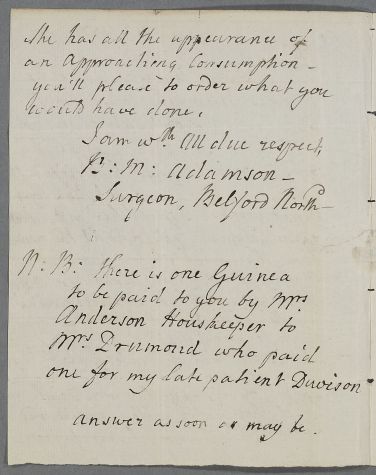 She has all the appearance of
an Approaching Consumption –
you'll please to order what you
would have done.
I am wth. All due respect,
Yr: M: Adamson –
Surgeon, Belford Northd –
N: B: there is one Guinea
to be paid to you by Mrs
Anderson Houskeeper to
Mrs Drumond who paid
one for my late patient Davison
answer as soon as may be.